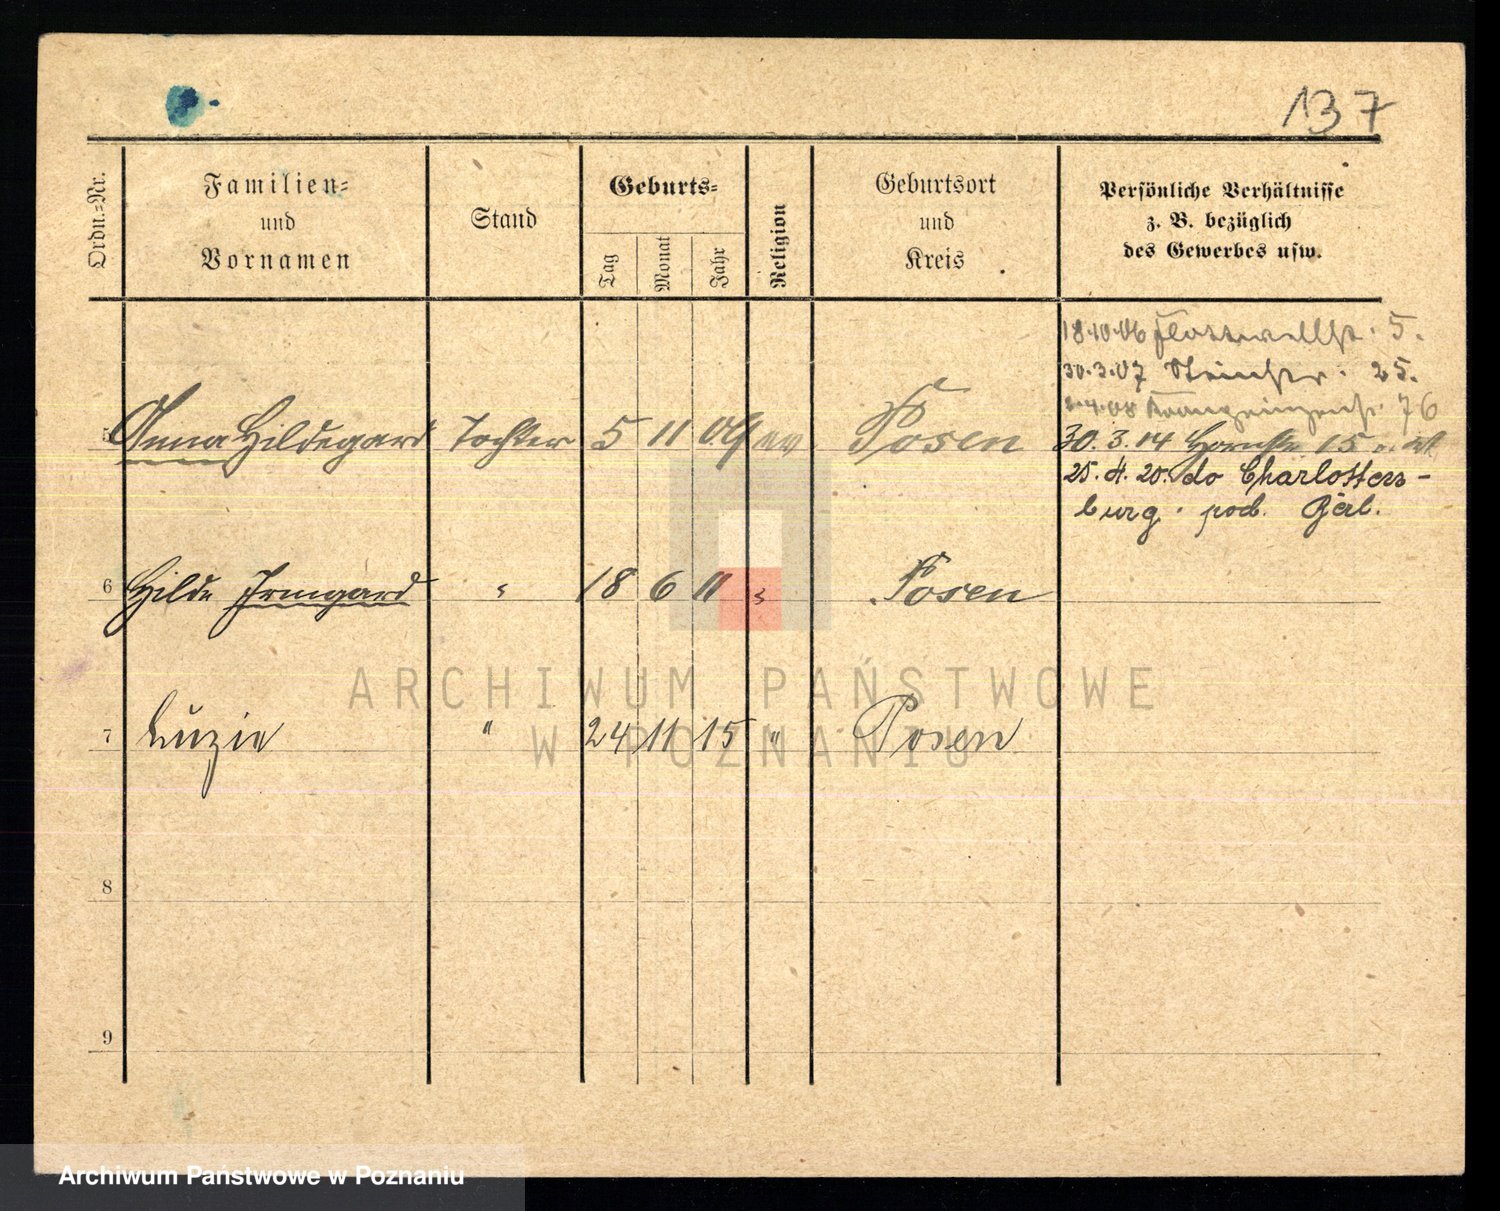 137
Ordn.-Nr.
Familien-
und
Vornamen
Stand
Geburts-
Tag
Monat
Jahr
Religion
Geburtsort
und
Kreis
Persönliche Verhältnisse
z. B. bezüglich
des Gewerbes usw.
18.10.06 Flottwellstr. 5.
30.3.07 Steinstr. 25.
4.08 Kronprinzenstr. 76
5 Anna Hildegard Tochter 5 11 09 ev Posen
30.3.14 15
25.4.20. do Charlotten-
burg. pod. Berl.
6 Hilde Irmgard " 18 6 11 " Posen
7 Luzie " 24 11 15 " Posen
8
9
ARCHIWUM PAŃSTWOWE
W POZNANIU
Archiwum Państwowe w Poznaniu